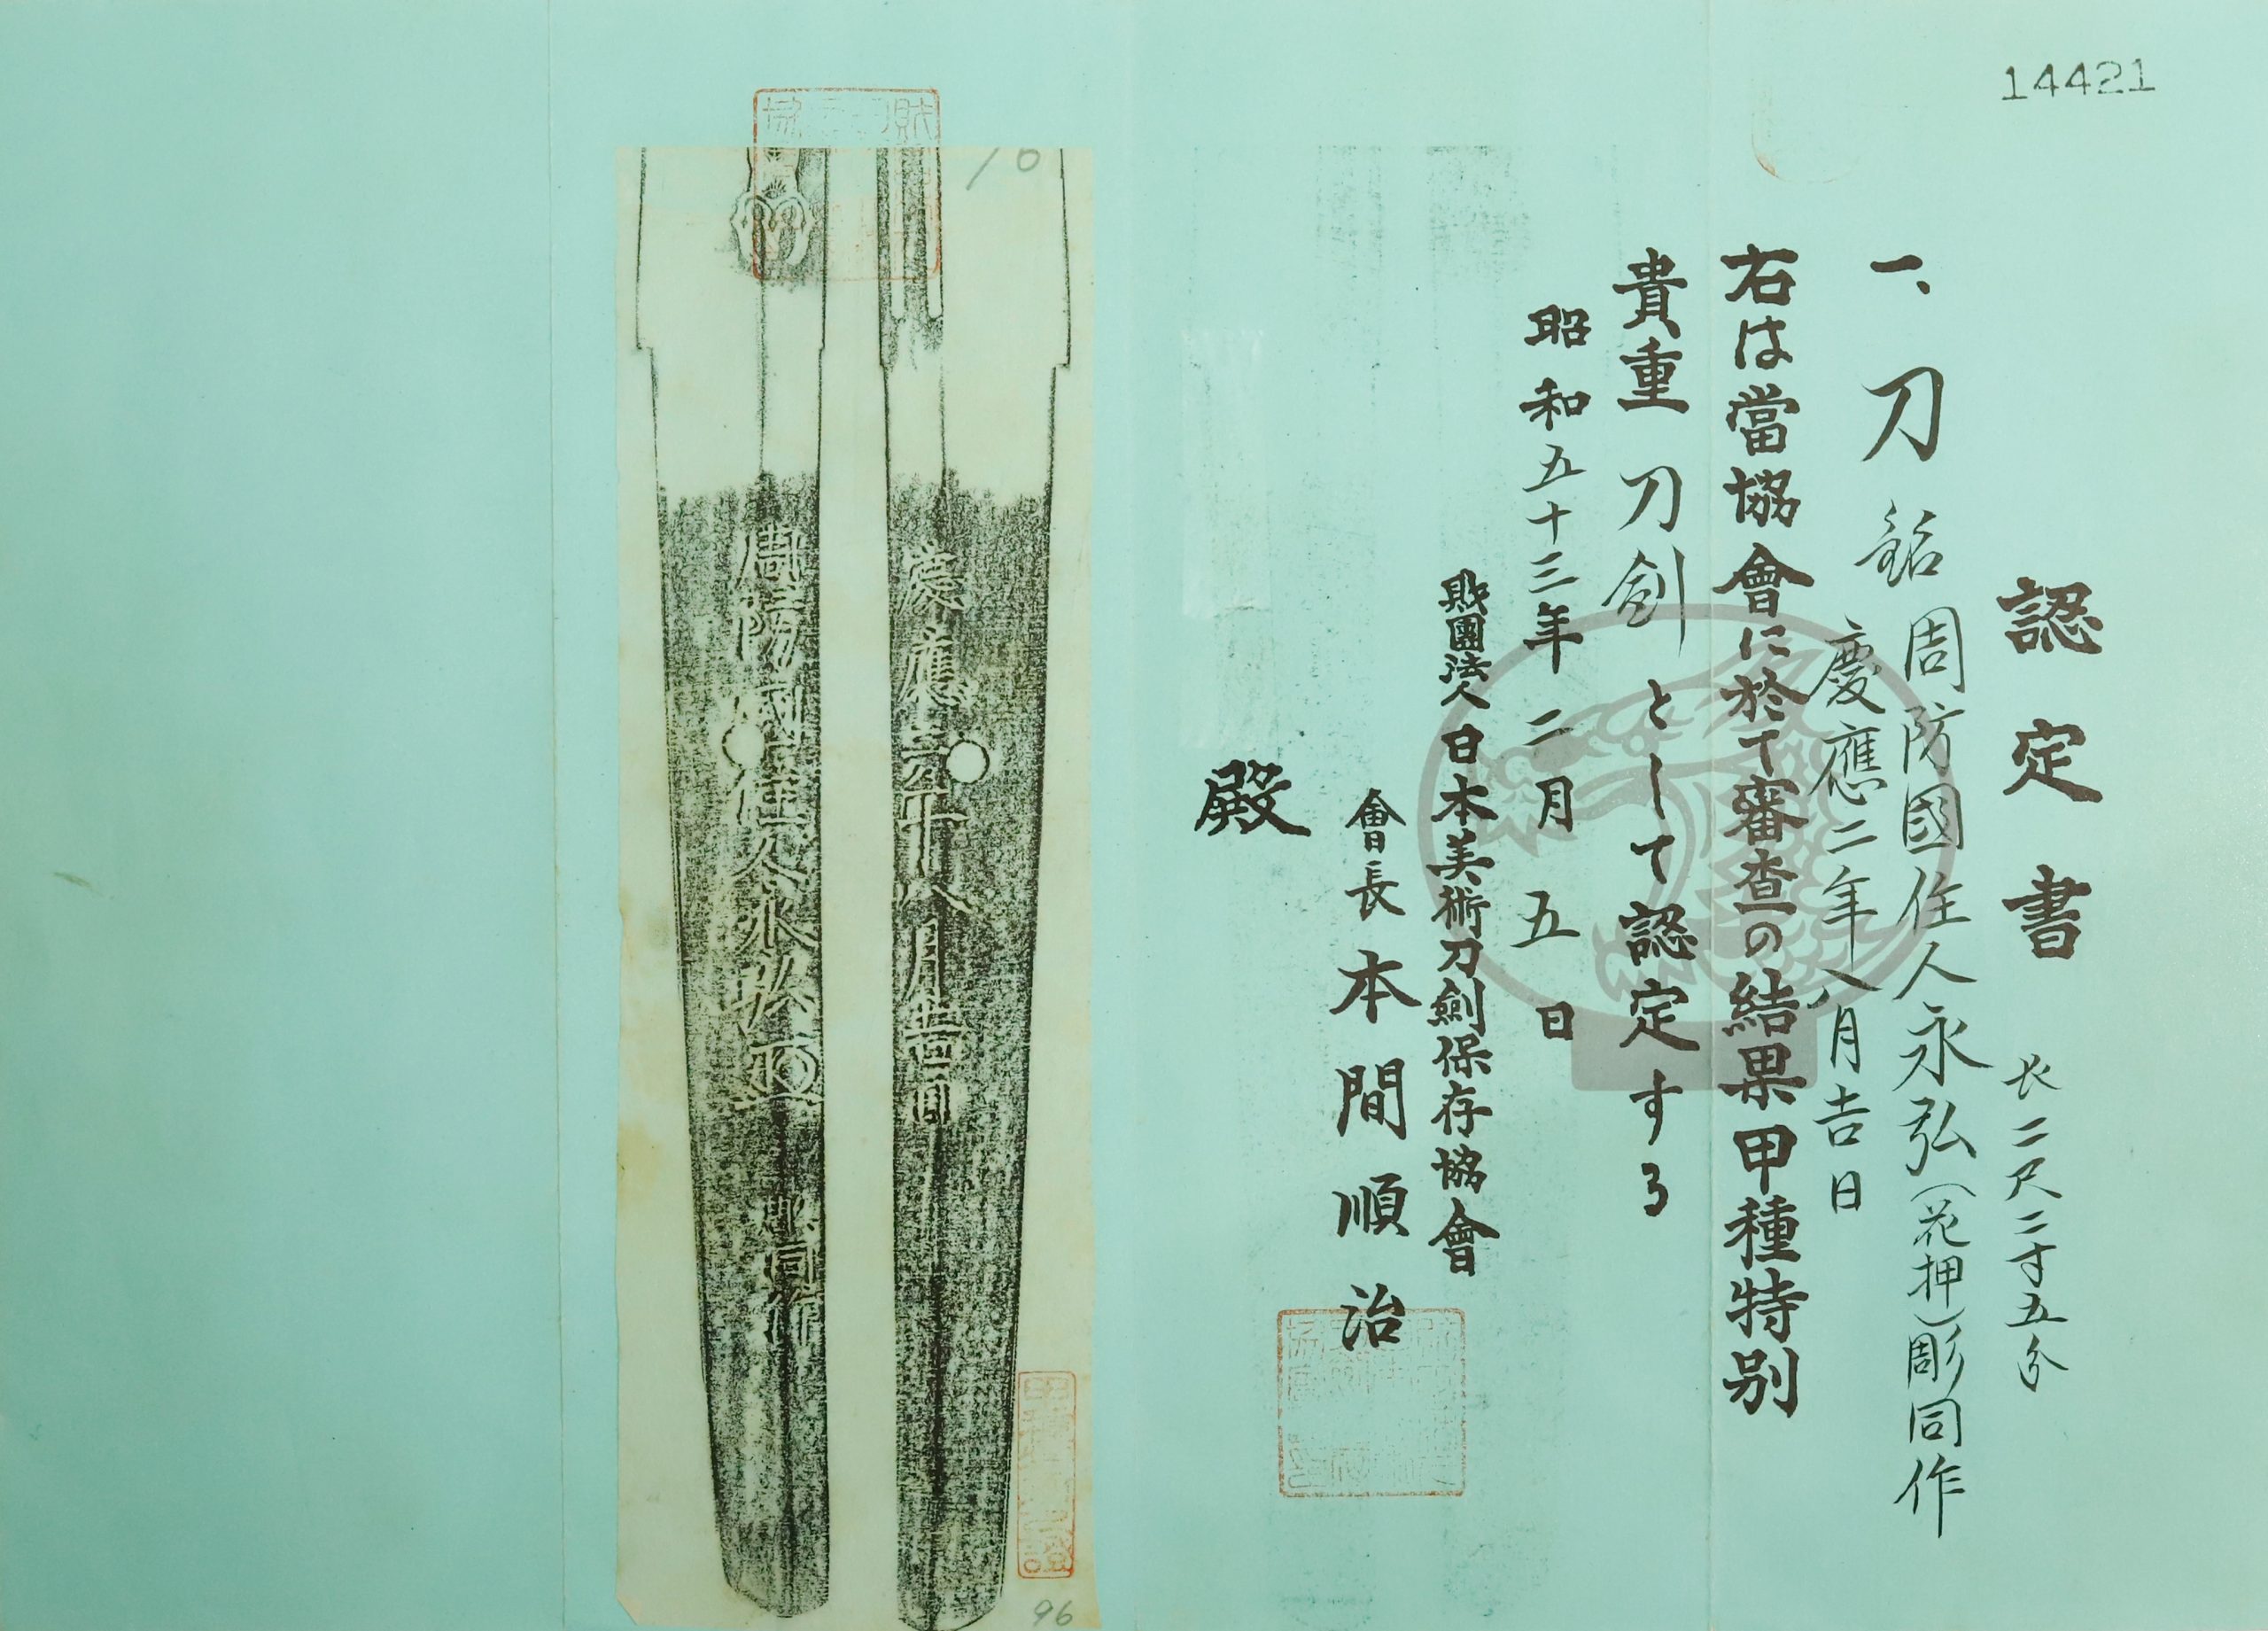 14421
認定書
長二尺二寸五分
一、刀 銘 周防國住人永弘(花押)彫同作
慶應二年八月吉日
右は當協會に於て審査の結果甲種特別
貴重刀剣として認定する
昭和五十三年二月五日
財團法人日本美術刀劍保存協會
會長 本間順治
殿
10
慶應二年八月吉日
周防國住人永弘
彫同作
96